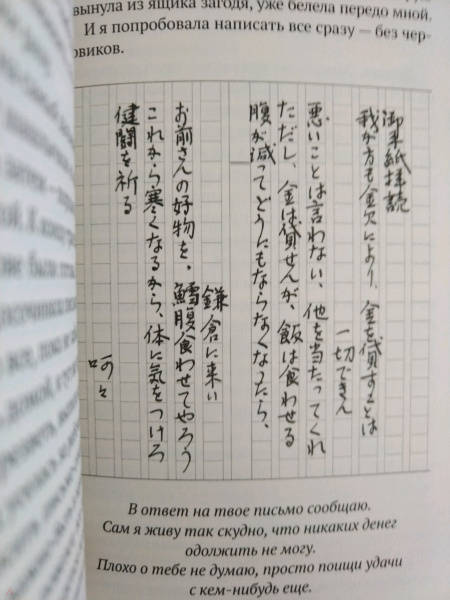 вынула из ящика загодя, уже белела передо мной.
И я попробовала написать все сразу — без чер-
овиков.
御手紙拝読
我が方も金欠により、金を貸すことは
一切できん
悪いことは言わない、他を当たってくれ
ただし、金は貸せんが、飯は食わせる
腹が減ってどうにもならなくなったら、
鎌倉に来い
お前さんの好物を、鱈腹食わせてやろう
これから寒くなるから、体に気をつけろ
健闘を祈る
呵々
В ответ на твое письмо сообщаю.
Сам я живу так скудно, что никаких денег
одолжить не могу.
Плохо о тебе не думаю, просто поищи удачи
с кем-нибудь еще.